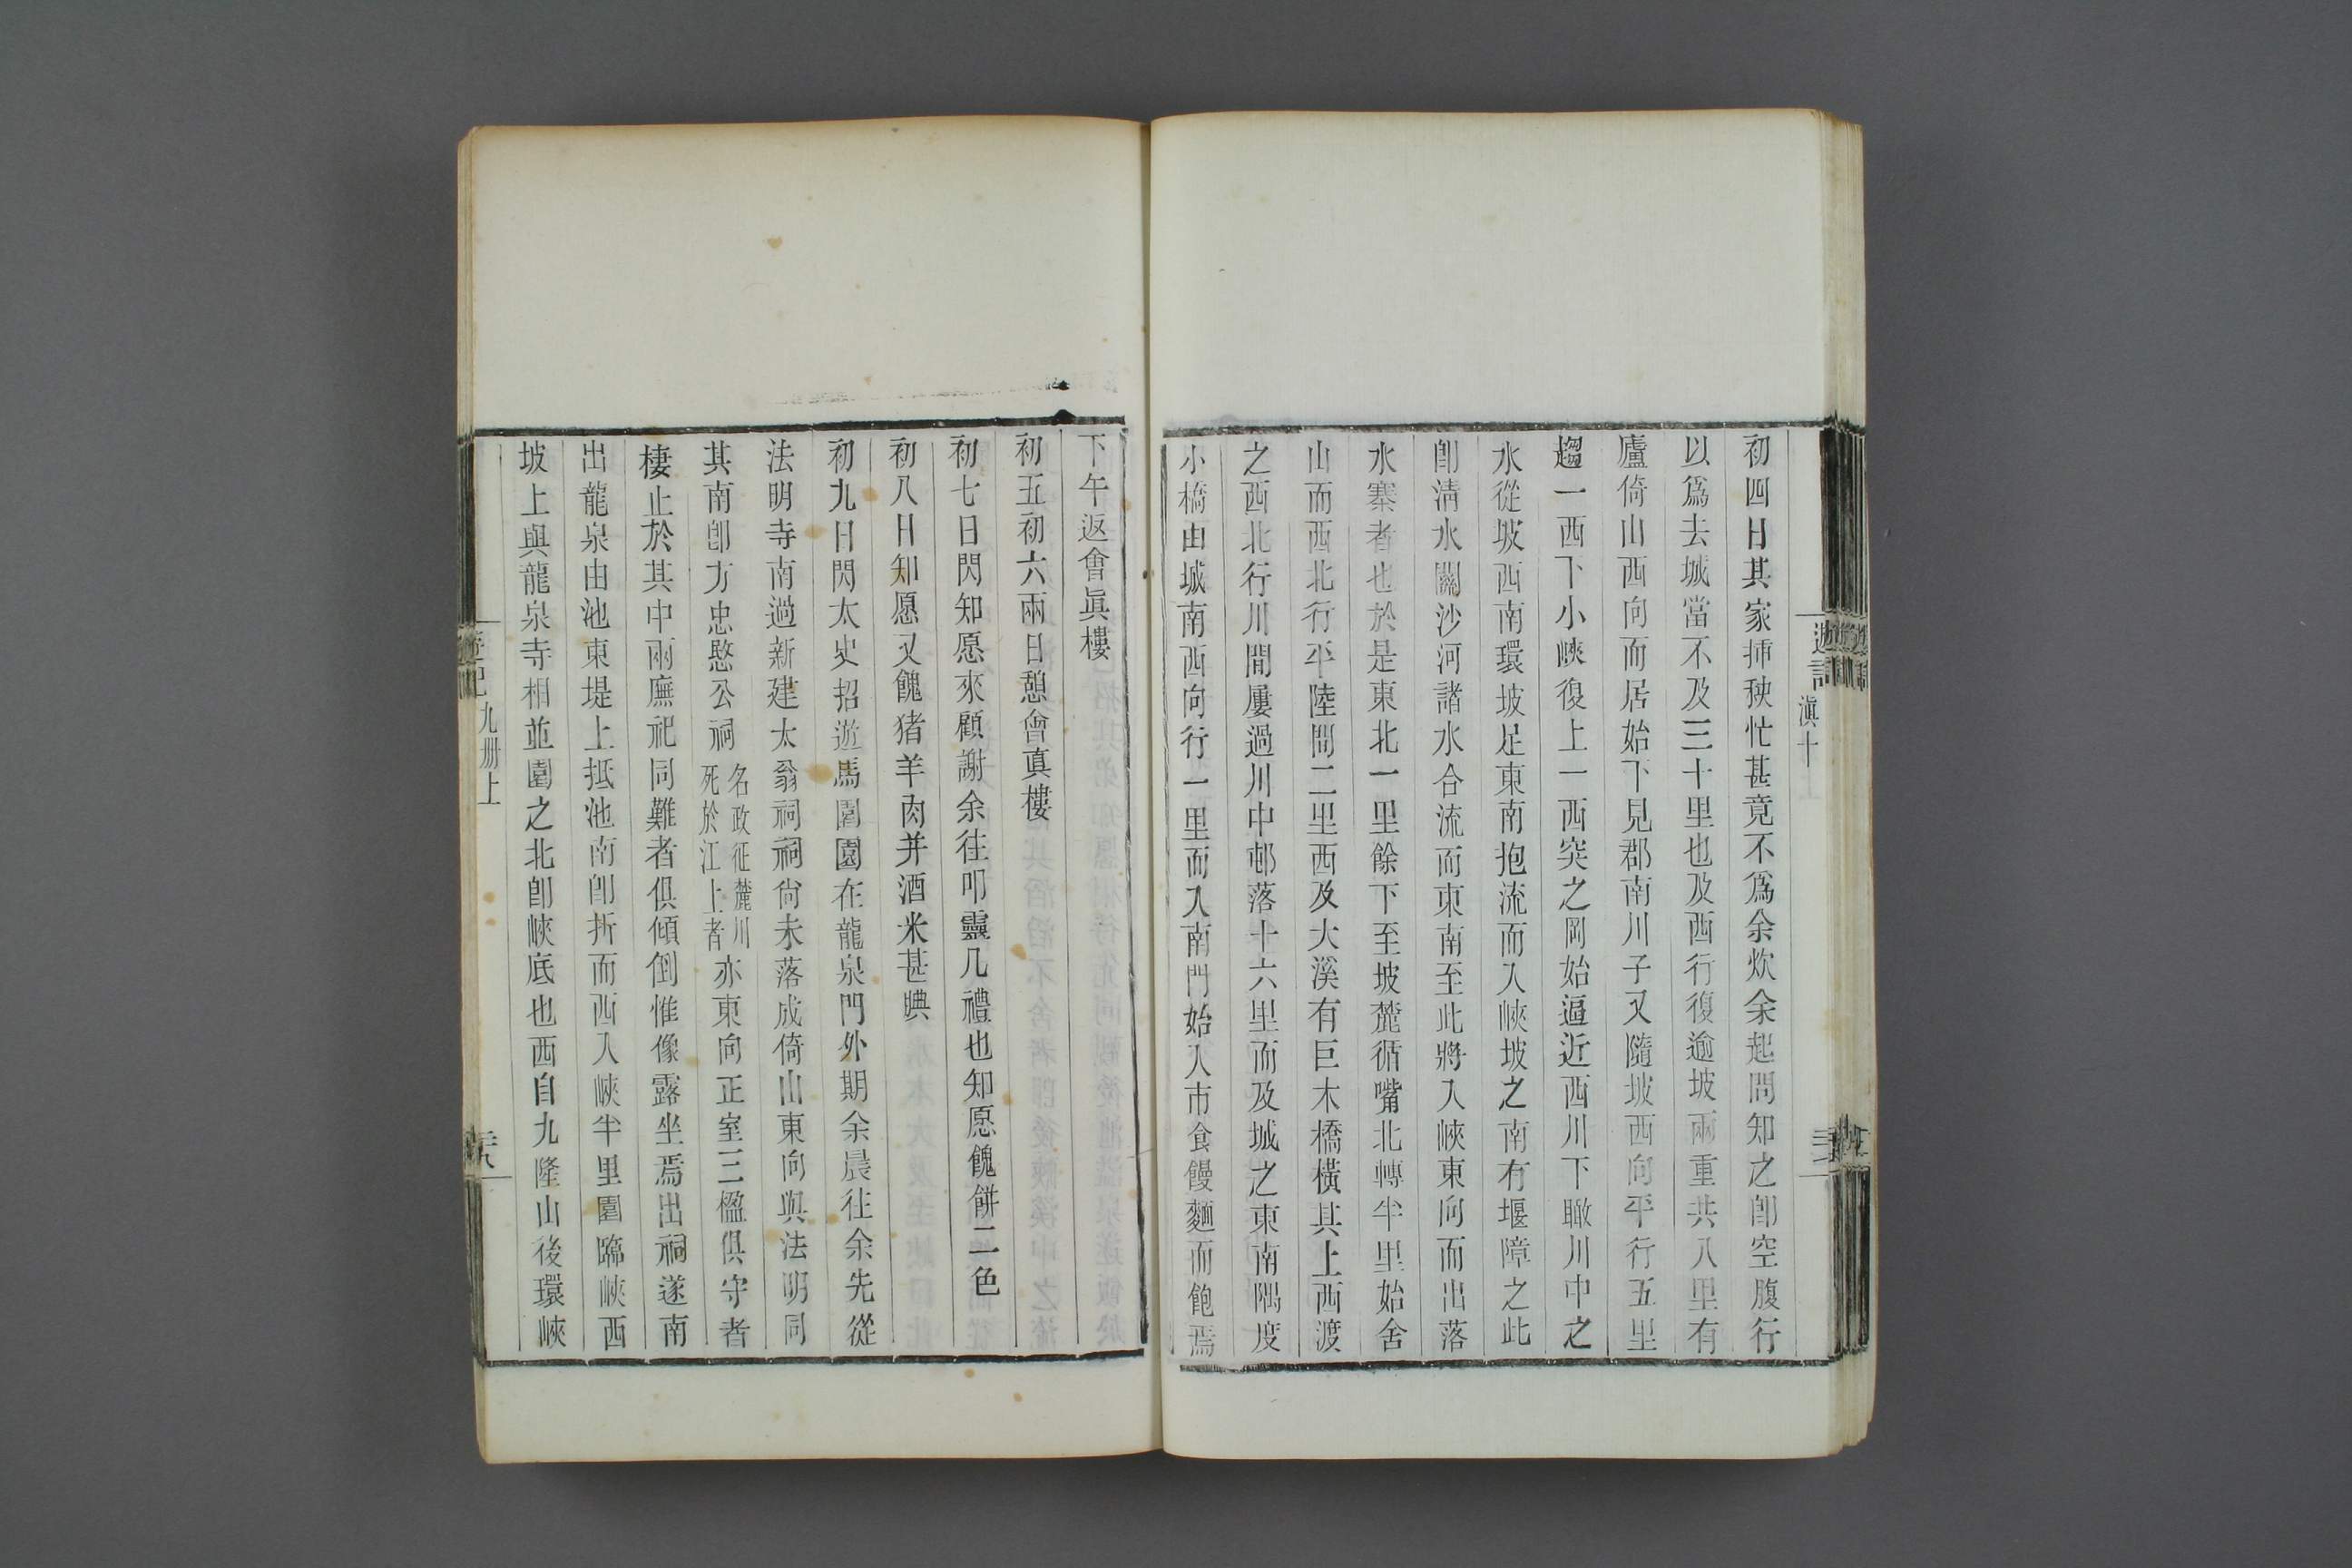 初四日其家揷秧忙甚竟不爲余炊余起問知之卽空腹行
以爲去城當不及三十里也及西行復逾坡兩重共八里有
廬倚山西向而居始下見郡南川子又隨坡西向平行五里
趨一西下小峽復上一西突之岡始逼近西川下瞰川中之
水從坡西南環坡足東南抱流而入峽坡之南有堰障之此
卽淸水關沙河諸水合流而東南至此將入峽東向而出落
水寨者也於是東北一里餘下至坡麓循嘴北轉半里始舍
山而西北行平陸間二里西及大溪有巨木橋橫其上西渡
之西北行川間屢過川中邨落十六里而及城之東南隅度
小橋由城南西向行一里而入南門始入市食饅麵而飽焉
下午返會眞樓
初五初六兩日憩會真樓
初七日閃知愿來顧謝余往叩靈几禮也知愿餽餅二色
初八日知愿又餽猪羊肉并酒米甚腆
初九日閃太史招遊馬園園在龍泉門外期余晨往余先從
法明寺南過新建太翁祠祠尙未落成倚山東向與法明同
其南卽方忠愍公祠名政征麓川死於江上者亦東向正室三楹俱守者
棲止於其中兩廡祀同難者俱傾倒惟像露坐焉出祠遂南
出龍泉由池東堤上抵池南卽折而西入峽半里園臨峽西
坡上與龍泉寺相並園之北卽峽底也西自九隆山後環峽
遊記
九册上